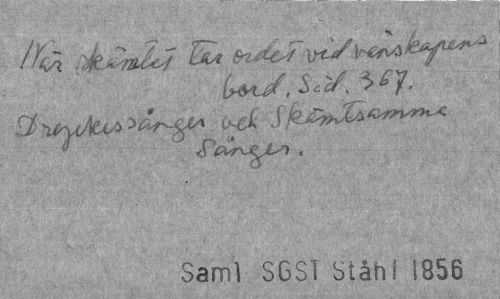 När skämtet tar ordet vid vänskapens
bord. Sid. 367.
Dryckessånger och Skämtsamma
Sånger.
Saml SGST Ståhl 1856